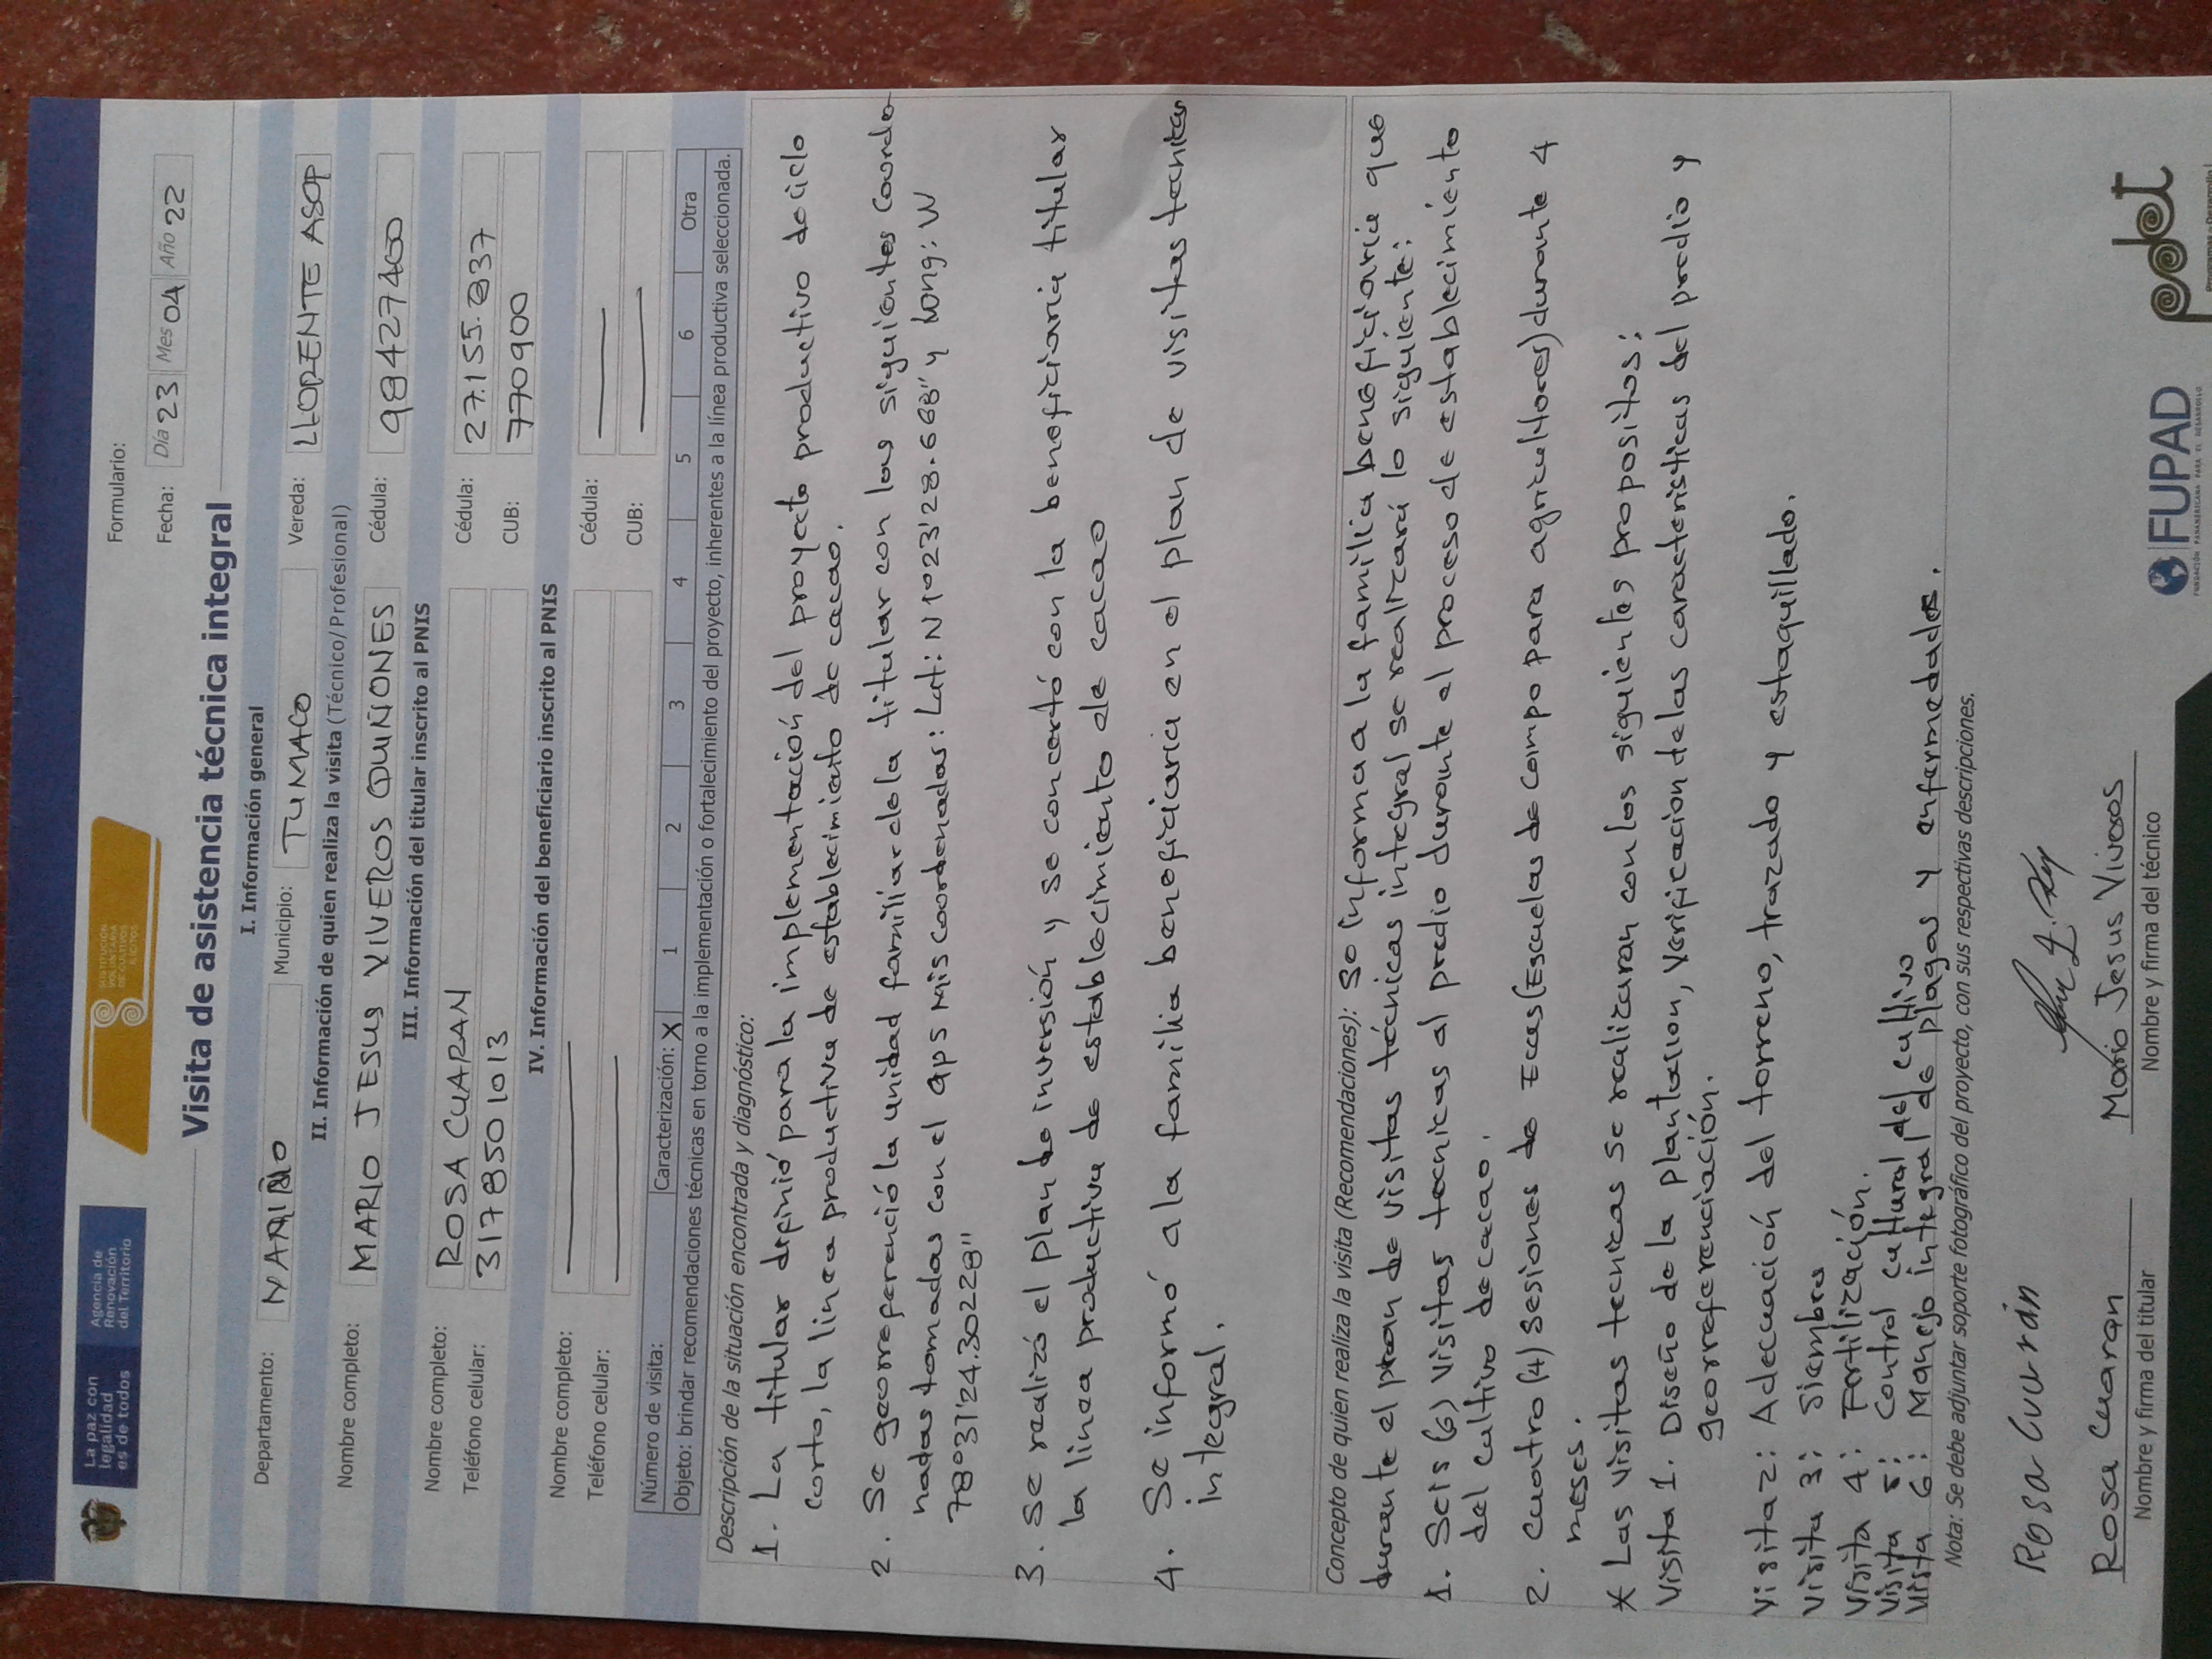 La paz con
legalidad
es de todos
Agencia de
Renovación
del Territorio
SUSTITUCIÓN
VOLUNTARIA
DE CULTIVOS
ILÍCITOS
Formulario:
Fecha: Día 23 Mes 04 Año 22
Visita de asistencia técnica integral
I. Información general
Departamento: NARIÑO Municipio: TUMACO Vereda: LLORENTE ASOP
II. Información de quien realiza la visita (Técnico/Profesional)
Nombre completo: MARIO JESUS VIVEROS QUIÑONES Cédula: 98427400
III. Información del titular inscrito al PNIS
Nombre completo: ROSA CUARAN Cédula: 27.155.837
Teléfono celular: 3178501013 CUB: 770900
IV. Información del beneficiario inscrito al PNIS
Nombre completo: Cédula:
Teléfono celular: CUB:
Número de visita: Caracterización: X 1 2 3 4 5 6 Otra
Objeto: brindar recomendaciones técnicas en torno a la implementación o fortalecimiento del proyecto, inherentes a la línea productiva seleccionada.
Descripción de la situación encontrada y diagnóstico:
1. La titular definió para la implementación del proyecto productivo de ciclo
corto, la linea productiva de establecimiento de cacao.
2. Se georreferenció la unidad familiar de la titular con las siguientes Coorde
nadas tomadas con el gps Mis Coordenadas: Lat: N 1°23'28.668" y Long: W
78°31'24.30228"
3. Se realizó el plan de inversión y se concertó con la beneficiaria titular
la linea productiva de establecimiento de cacao
4. Se informó a la familia beneficiaria en el plan de visitas tecnicas
integral.
Concepto de quien realiza la visita (Recomendaciones): Se informa a la familia beneficiaria que
durante el plan de visitas técnicas integral se realizará lo siguiente:
1. Seis (6) visitas tecnicas al predio durante el proceso de establecimiento
del cultivo de cacao.
2. Cuatro (4) Sesiones de Ecas (Escuelas de Campo para agricultores) durante 4
meses.
* Las visitas tecnicas se realizaran con los siguientes propositos:
Visita 1. Diseño de la plantacion, Verificacion de las caracteristicas del predio y
georreferenciación.
Visita 2: Adecuación del terreno, trazado y estaquillado.
Visita 3: Siembra
Visita 4: Fertilización.
Visita 5: Control cultural del cultivo
Visita 6: Manejo integral de plagas y enfermedades.
Nota: Se debe adjuntar soporte fotográfico del proyecto, con sus respectivas descripciones.
Rosa Cuarán
Rosa Cuaran
Nombre y firma del titular
Mario Jesus Viveros
Nombre y firma del técnico
FUPAD
FUNDACIÓN PANAMERICANA PARA EL DESARROLLO
pdet